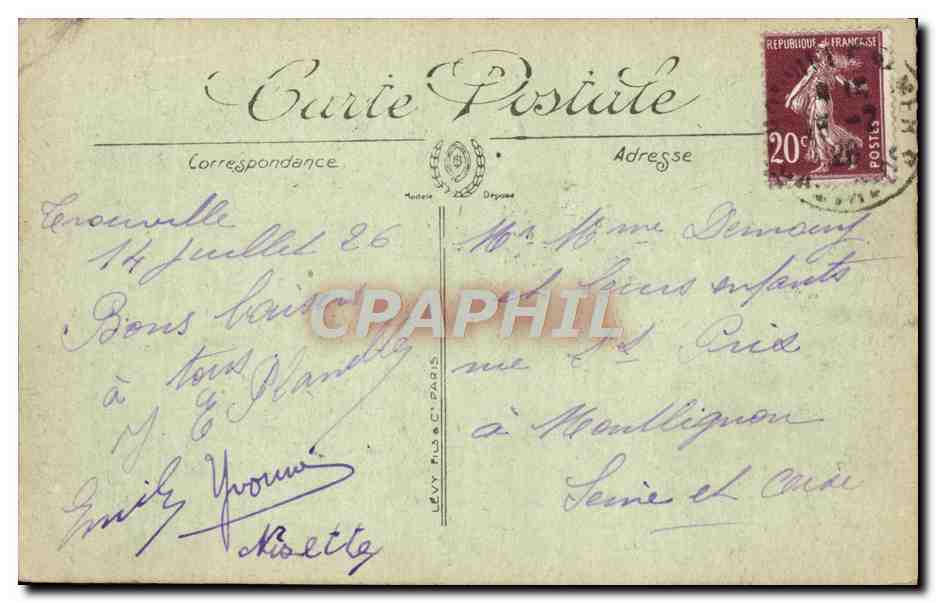 Carte Postale
Correspondance
Adresse
Modèle Déposé
REPUBLIQUE FRANÇAISE
20c
POSTES
Trouville
14 Juillet 26
Bons baisers
à tous
Emily Yvonne
Nisette
Mr Mme Demouy
et leurs enfants
rue St Prix
à Montlignon
Seine et Oise
LÉVY FILS & Cie PARIS
CPAPHIL